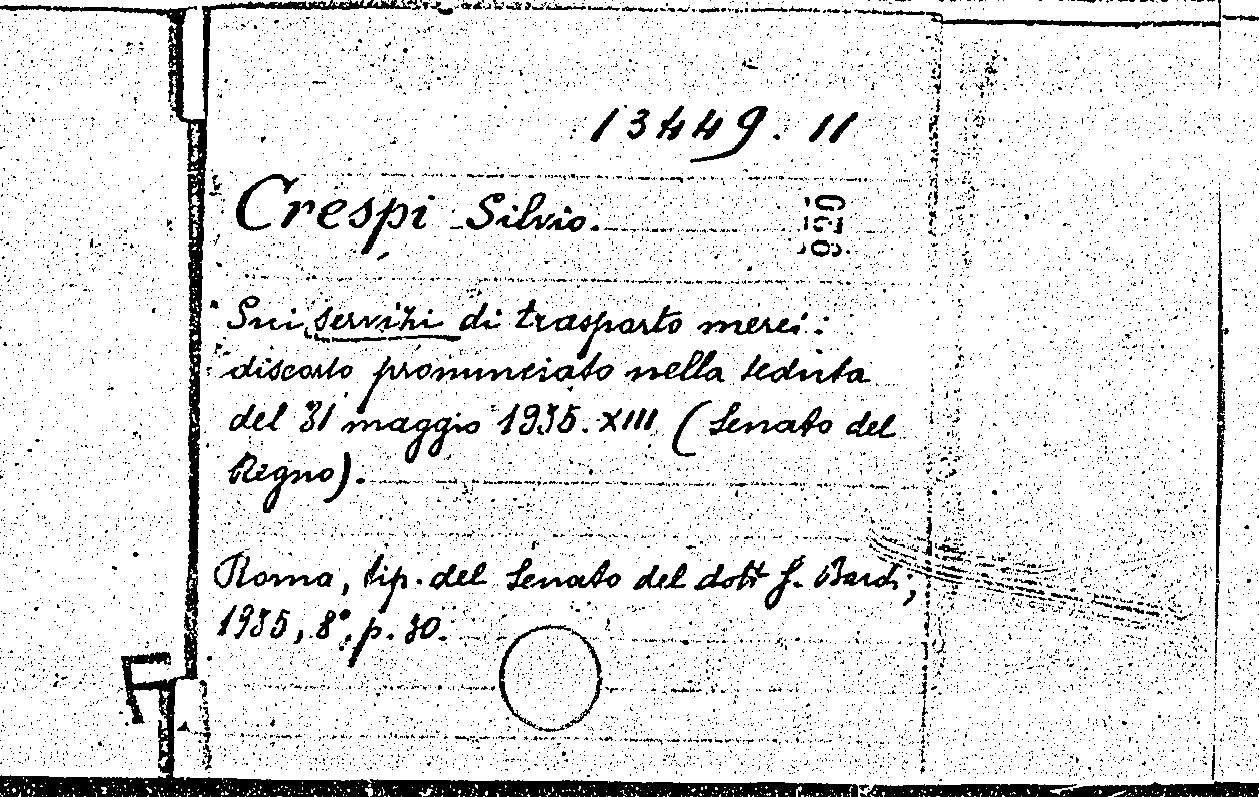 13449. 11
Crespi Silvio.
920
Sui servizi di trasporto merci:
discorso pronunciato nella seduta
del 31 maggio 1935. XIII (Senato del
Regno).
Roma, tip. del Senato del dott G. Bardi;
1935, 8°, p. 30.